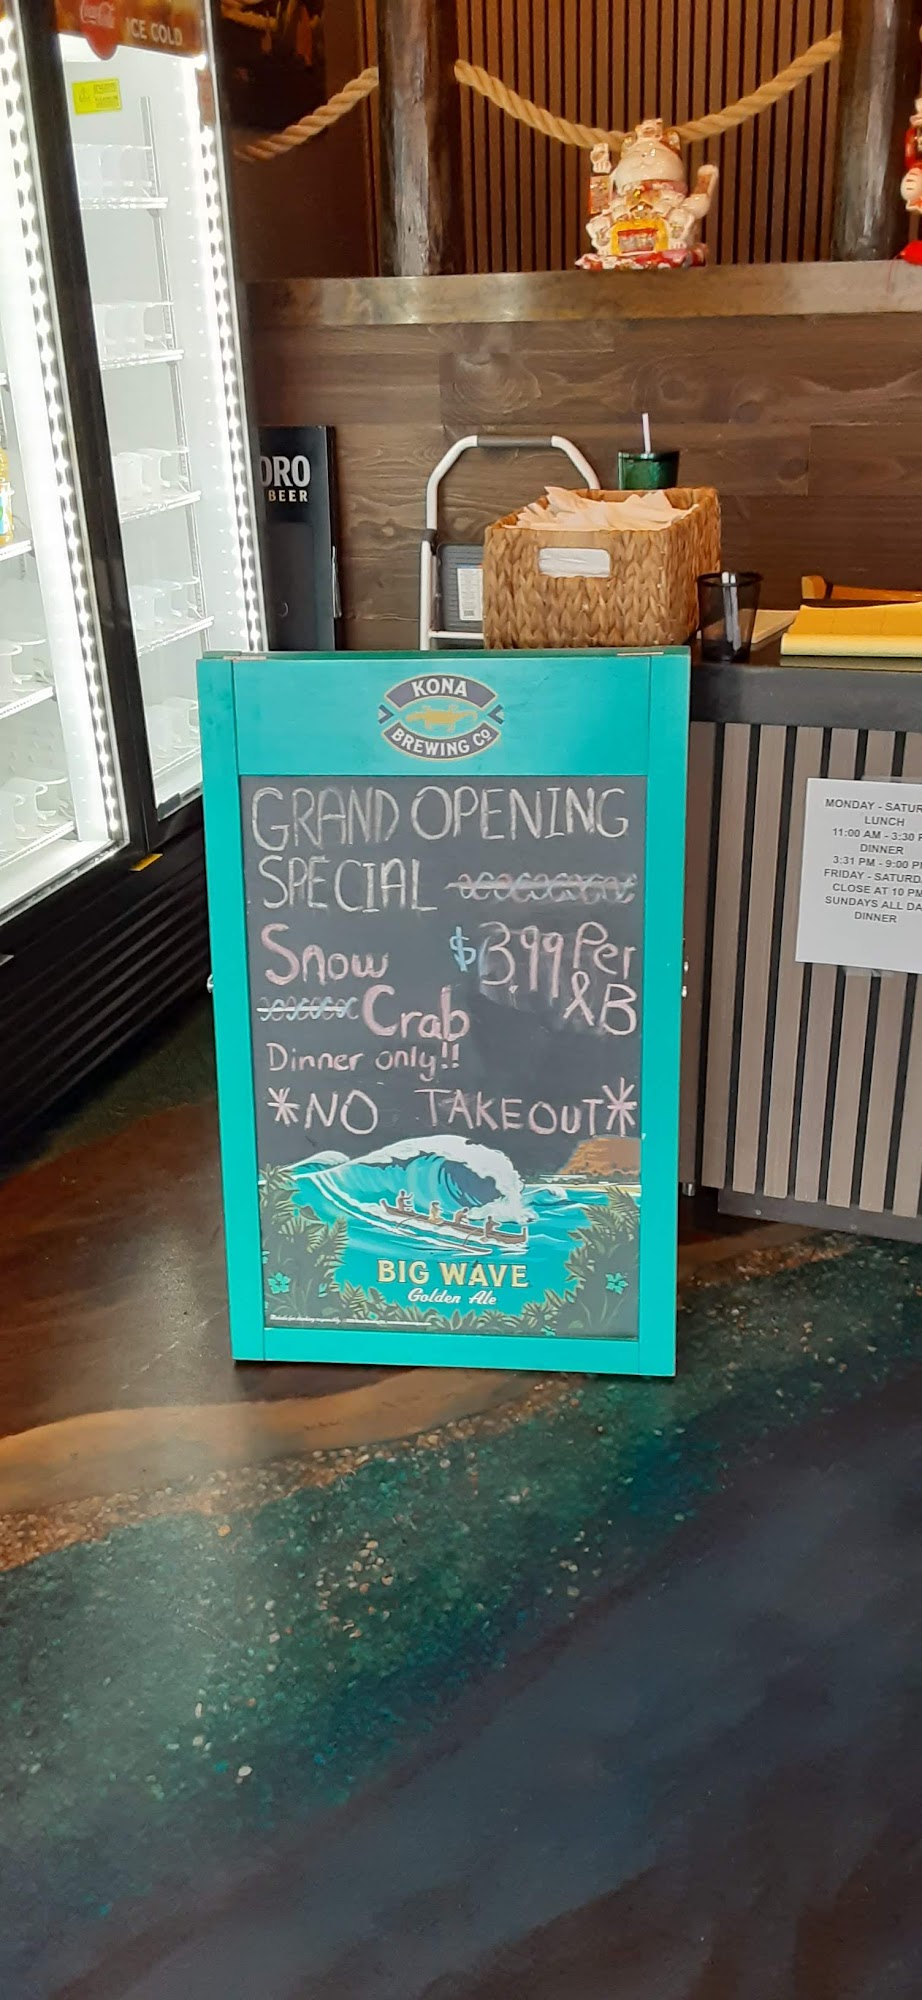 Coca-Cola
ICE COLD
ORO
BEER
KONA
BREWING CO
GRAND OPENING
SPECIAL
Snow $3.99 Per
Crab LB
Dinner only!!
*NO TAKEOUT*
BIG WAVE
Golden Ale
MONDAY - SATUR
LUNCH
11:00 AM - 3:30 P
DINNER
3:31 PM - 9:00 P
FRIDAY - SATURD
CLOSE AT 10 PM
SUNDAYS ALL DA
DINNER